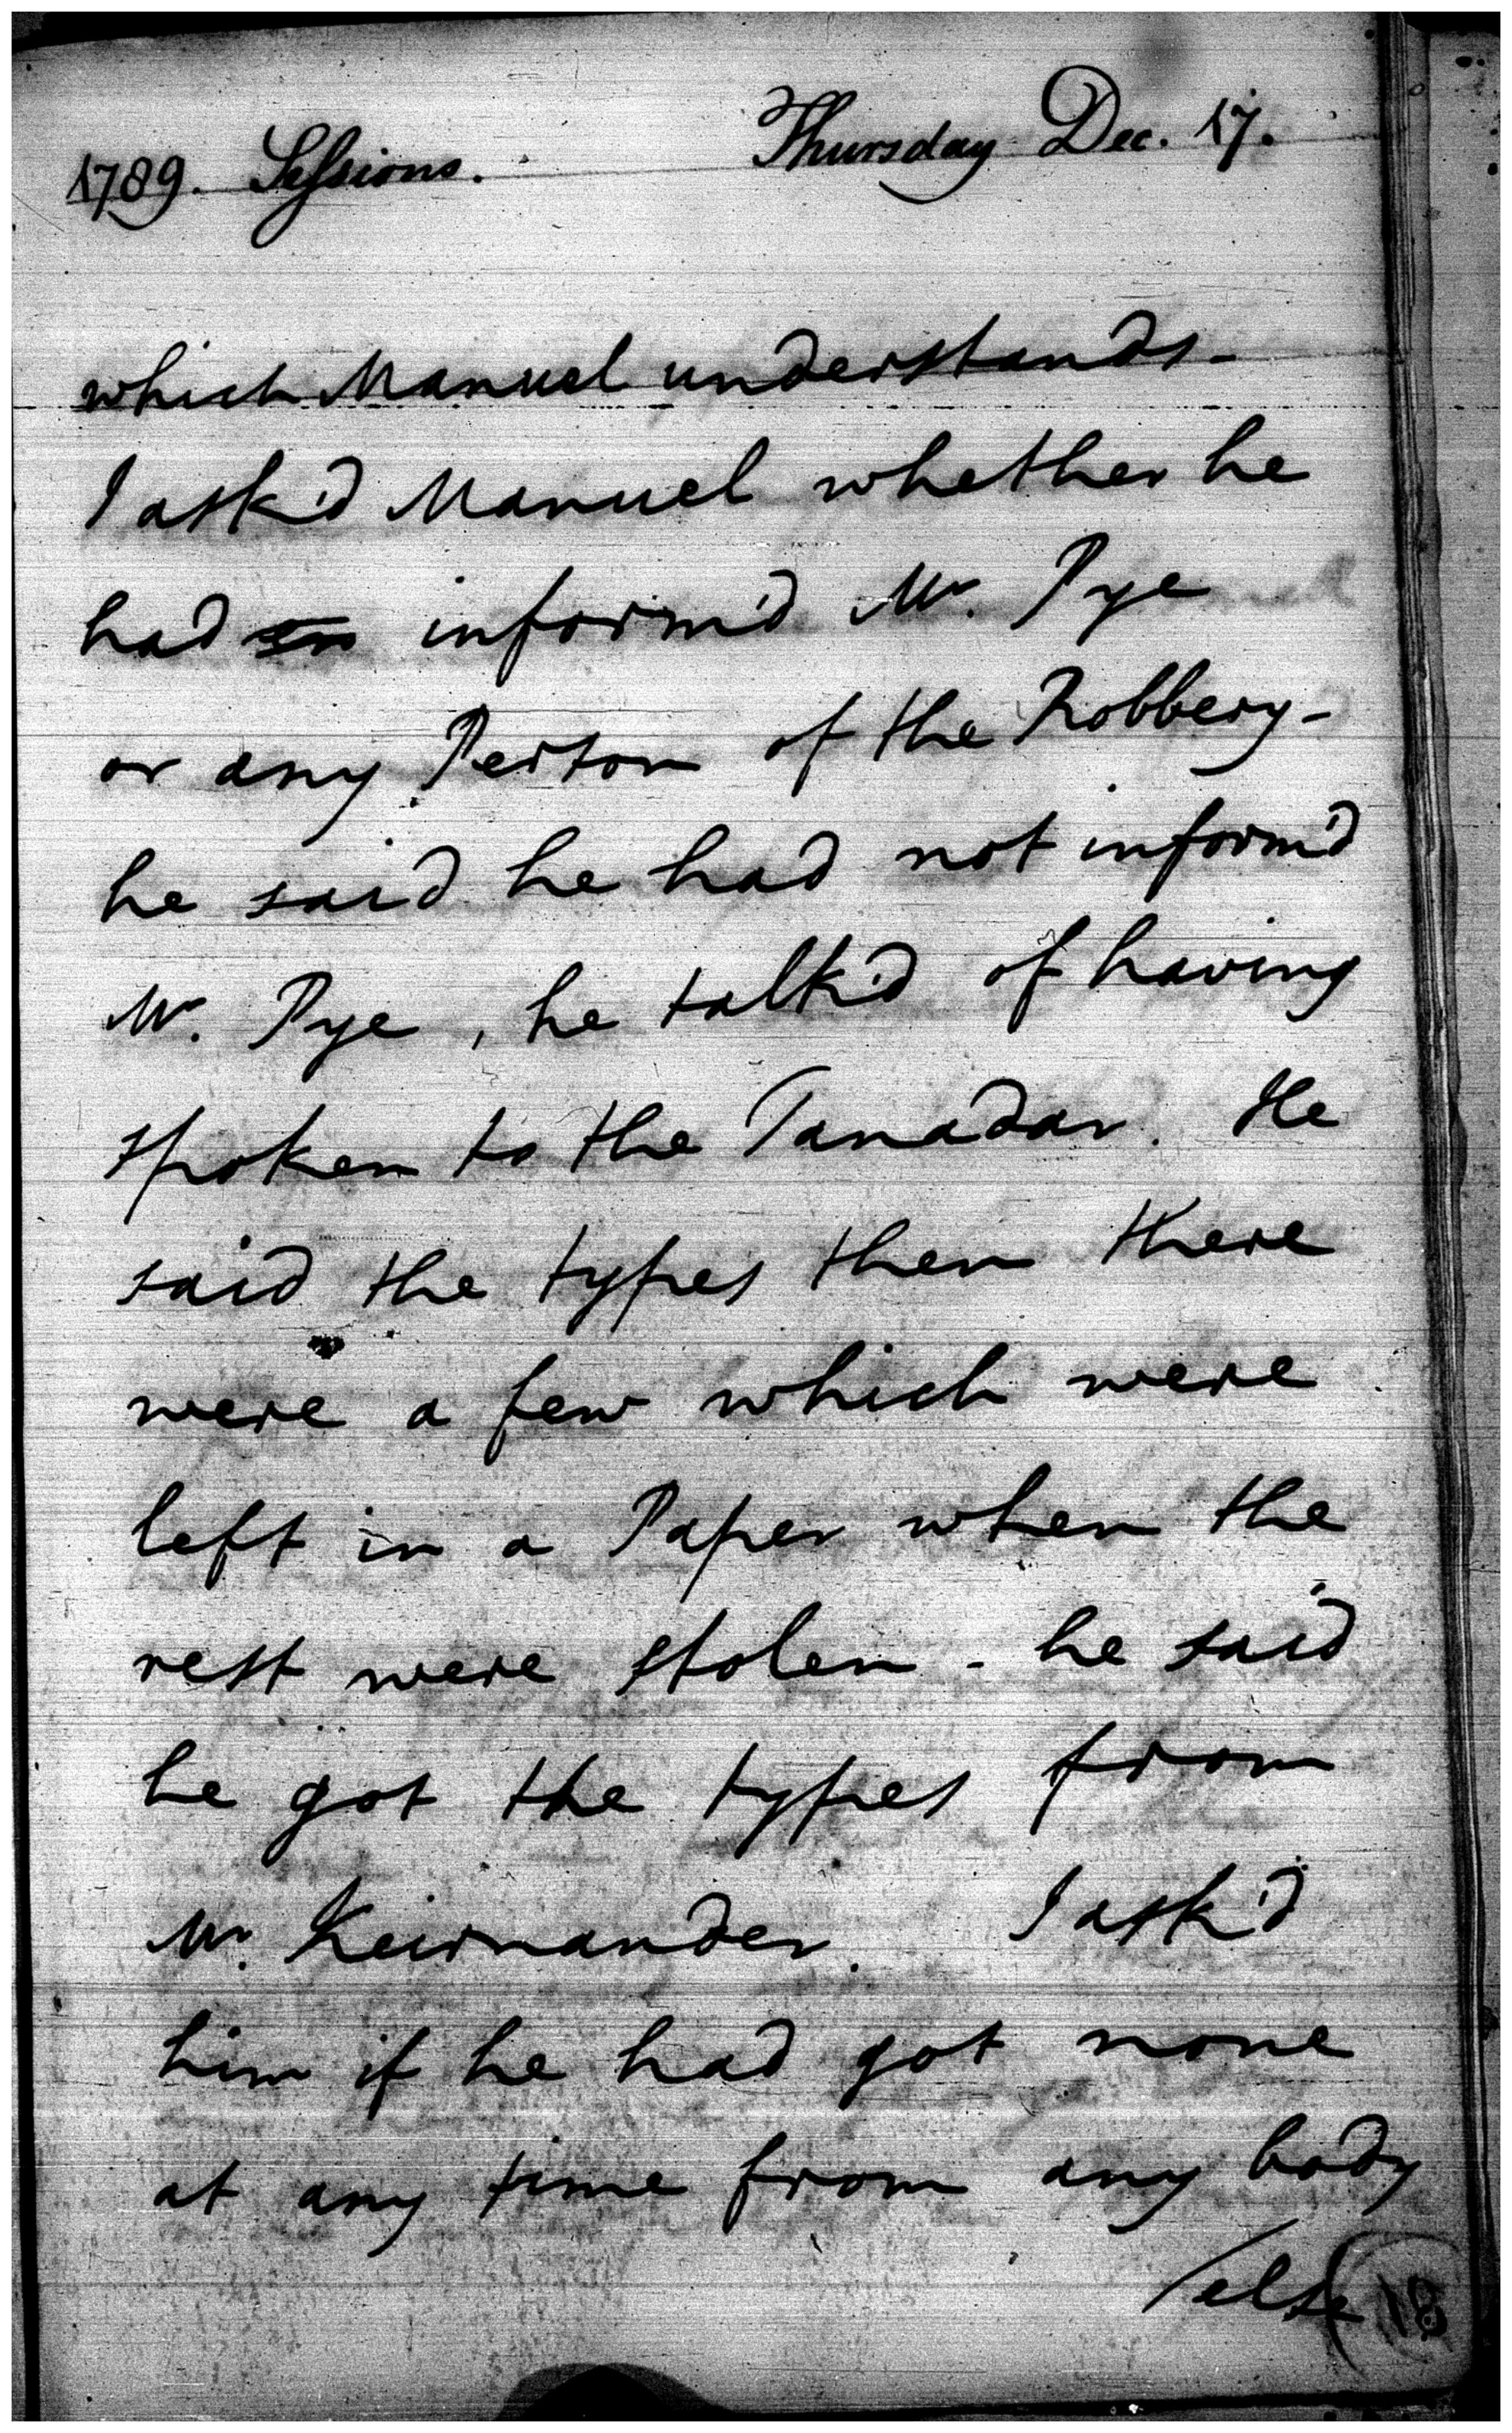 1789. Sessions. Thursday Dec. 17.
which Manuel understands -
I ask'd Manuel whether he
had inform'd Mr. Pye
or any Person of the Robbery -
he said he had not inform'd
Mr. Pye, he talk'd of having
spoken to the Tanadar. He
said the types then there
were a few which were
left in a Paper when the
rest were stolen - he said
he got the types from
Mr. Keirnander. I ask'd
him if he had got none
at any time from any body
/else